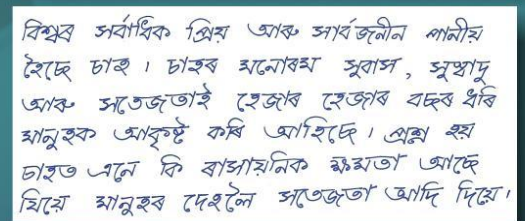 বিশ্বৰ সৰ্বাধিক প্ৰিয় আৰু সাৰ্বজনীন পানীয়
হৈছে চাহ । চাহৰ মনোৰম সুবাস , সুস্বাদু
আৰু সতেজতাই হেজাৰ হেজাৰ বছৰ ধৰি
মানুহক আকৃষ্ট কৰি আহিছে । প্ৰশ্ন হয়
চাহত এনে কি ৰাসায়নিক ক্ষমতা আছে
যিয়ে মানুহৰ দেহলৈ সতেজতা আদি দিয়ে ।